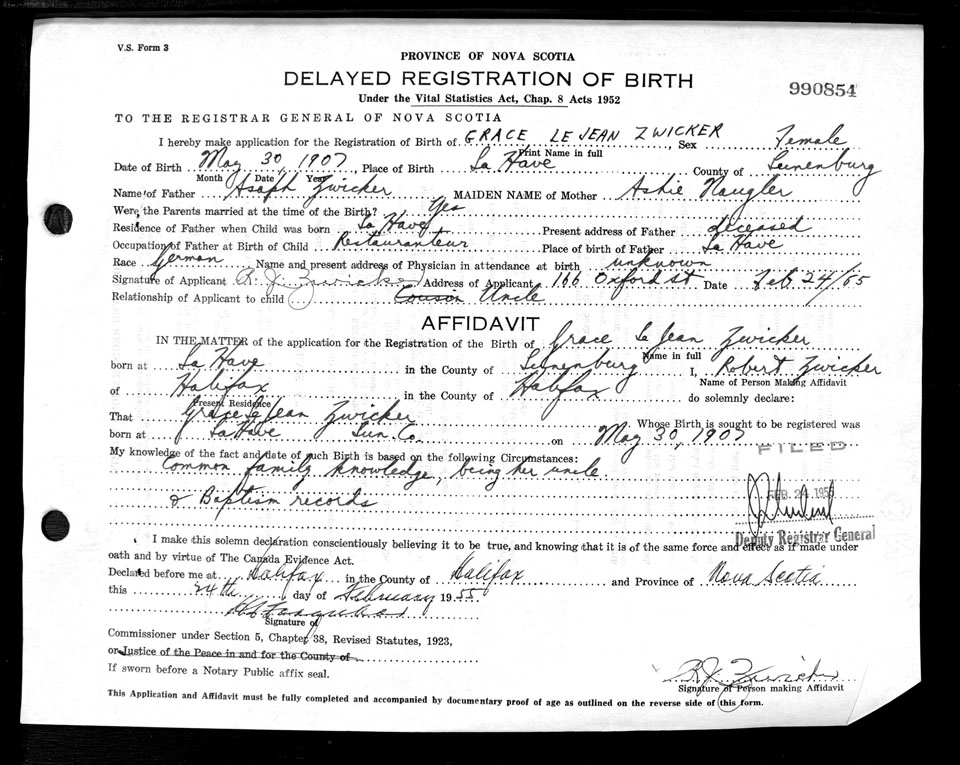 V.S. Form 3
PROVINCE OF NOVA SCOTIA
DELAYED REGISTRATION OF BIRTH
990854
Under the Vital Statistics Act, Chap. 8 Acts 1952
TO THE REGISTRAR GENERAL OF NOVA SCOTIA
I hereby make application for the Registration of Birth of GRACE LE JEAN ZWICKER, Sex Female
Print Name in full
Date of Birth May 30, 1907, Place of Birth La Have County of Lunenburg
Month Date Year
Name of Father Asaph Zwicker MAIDEN NAME of Mother Naugler
Were the Parents married at the time of the Birth? Yes
Residence of Father when Child was born La Have Present address of Father deceased
Occupation of Father at Birth of Child Restauranteur Place of birth of Father La Have
Race German Name and present address of Physician in attendance at birth unknown
Signature of Applicant R. J. Zwicker Address of Applicant 166 Oxford St Date Feb 24/55
Relationship of Applicant to child Cousin Uncle
AFFIDAVIT
IN THE MATTER of the application for the Registration of the Birth of Grace Le Jean Zwicker
Name in full
born at La Have in the County of Lunenburg I, Robert Zwicker
Name of Person Making Affidavit
of Halifax in the County of Halifax do solemnly declare:
Present Residence
That Grace Le Jean Zwicker Whose Birth is sought to be registered was
born at La Have Lun. Co. on May 30, 1907
My knowledge of the fact and date of such Birth is based on the following Circumstances:
Common family knowledge, being her uncle
& Baptism records
FILED
FEB. 24 1955
Deputy Registrar General
I make this solemn declaration conscientiously believing it to be true, and knowing that it is of the same force and effect as if made under
oath and by virtue of The Canada Evidence Act.
Declared before me at Halifax in the County of Halifax and Province of Nova Scotia
this 24th day of February 1955
Signature of
Commissioner under Section 5, Chapter 38, Revised Statutes, 1923,
or Justice of the Peace in and for the County of
If sworn before a Notary Public affix seal.
R. J. Zwicker
Signature of Person making Affidavit
This Application and Affidavit must be fully completed and accompanied by documentary proof of age as outlined on the reverse side of this form.